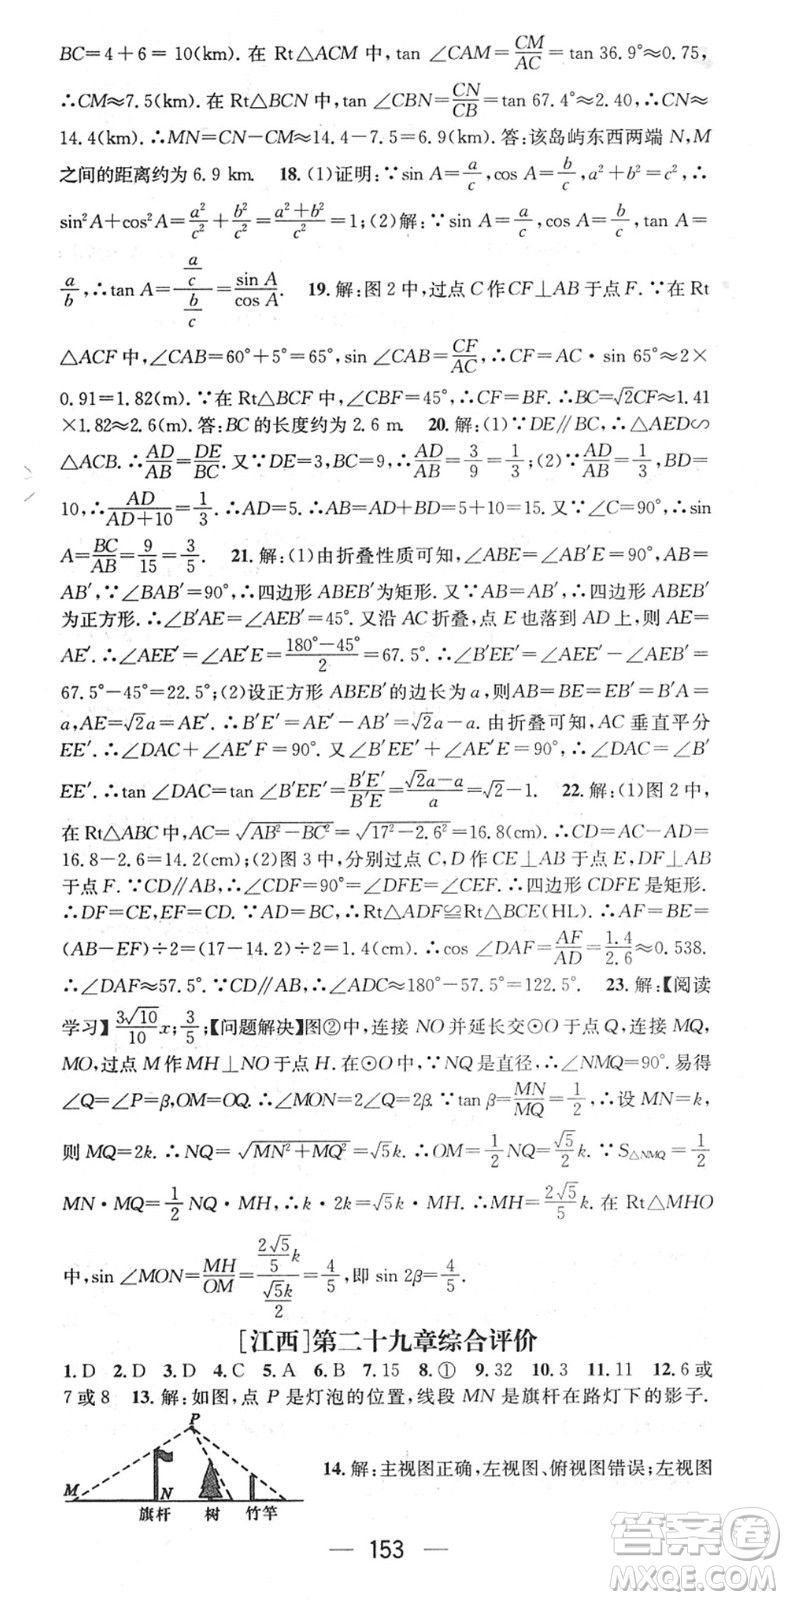 BC=4+6=10(km). 在 Rt△ACM 中,tan ∠CAM=CM/AC=tan 36.9°≈0.75,
∴CM≈7.5(km). 在 Rt△BCN 中,tan ∠CBN=CN/CB=tan 67.4°≈2.40,∴CN≈
14.4(km). ∴MN=CN−CM≈14.4−7.5=6.9(km). 答:该岛屿东西两端 N,M
之间的距离约为 6.9 km. 18. (1)证明:∵sin A=a/c,cos A=b/c,a²+b²=c²,∴
sin²A+cos²A=a²/c²+b²/c²=(a²+b²)/c²=1;(2)解:∵sin A=a/c,cos A=b/c,tan A=
a/b,∴tan A=(a/c)/(b/c)=sin A/cos A. 19. 解:图 2 中,过点 C 作 CF⊥AB 于点 F. ∵在 Rt
△ACF 中,∠CAB=60°+5°=65°,sin ∠CAB=CF/AC,∴CF=AC·sin 65°≈2×
0.91=1.82(m). ∵在 Rt△BCF 中,∠CBF=45°,∴CF=BF. ∴BC=√2CF≈1.41
×1.82≈2.6(m). 答:BC 的长度约为 2.6 m. 20. 解:(1)∵DE∥BC,∴△AED∽
△ACB. ∴AD/AB=DE/BC. 又∵DE=3,BC=9,∴AD/AB=3/9=1/3;(2)∵AD/AB=1/3,BD=
10,∴AD/(AD+10)=1/3. ∴AD=5. ∴AB=AD+BD=5+10=15. 又∵∠C=90°,∴sin
A=BC/AB=9/15=3/5. 21. 解:(1)由折叠性质可知,∠ABE=∠AB′E=90°,AB=
AB′,∵∠BAB′=90°,∴四边形 ABEB′为矩形. 又∵AB=AB′,∴四边形 ABEB′
为正方形. ∴∠B′AE=∠AEB′=45°. 又沿 AC 折叠,点 E 也落到 AD 上,则 AE=
AE′. ∴∠AEE′=∠AE′E=(180°−45°)/2=67.5°. ∴∠B′EE′=∠AEE′−∠AEB′=
67.5°−45°=22.5°;(2)设正方形 ABEB′的边长为 a,则AB=BE=EB′=B′A=
a,AE=√2a=AE′. ∴B′E′=AE′−AB′=√2a−a. 由折叠可知,AC 垂直平分
EE′. ∴∠DAC+∠AE′F=90°. 又∠B′EE′+∠AE′E=90°,∴∠DAC=∠B′
EE′. ∴tan ∠DAC=tan ∠B′EE′=B′E′/B′E=(√2a−a)/a=√2−1. 22. 解:(1)图 2 中,
在 Rt△ABC 中,AC=√(AB²−BC²)=√(17²−2.6²)=16.8(cm). ∴CD=AC−AD=
16.8−2.6=14.2(cm);(2)图 3 中,分别过点 C,D 作 CE⊥AB 于点 E,DF⊥AB 于
点 F. ∵CD∥AB,∴∠CDF=90°=∠DFE=∠CEF. ∴四边形 CDFE 是矩形.
∴DF=CE,EF=CD. ∵AD=BC,∴Rt△ADF≌Rt△BCE(HL). ∴AF=BE=
(AB−EF)÷2=(17−14.2)÷2=1.4(cm). ∴cos ∠DAF=AF/AD=1.4/2.6≈0.538.
∴∠DAF≈57.5°. ∵CD∥AB,∴∠ADC≈180°−57.5°=122.5°. 23. 解:【阅读
学习】3√10/10 x;3/5;【问题解决】图②中,连接 NO 并延长交⊙O 于点 Q,连接 MQ,
MO,过点 M 作 MH⊥NO 于点 H. 在⊙O 中,∵NQ 是直径,∴∠NMQ=90°. 易得
∠Q=∠P=β,OM=OQ. ∴∠MON=2∠Q=2β. ∵tan β=MN/MQ=1/2,∴设 MN=k,
则 MQ=2k. ∴NQ=√(MN²+MQ²)=√5k. ∴OM=1/2NQ=√5/2k. ∵S△NMQ=1/2
MN·MQ=1/2NQ·MH,∴k·2k=√5k·MH. ∴MH=2√5/5k. 在 Rt△MHO
中,sin ∠MON=MH/OM=(2√5/5k)/(√5k/2)=4/5,即 sin 2β=4/5.
[江西]第二十九章综合评价
1. D 2. D 3. D 4. C 5. A 6. B 7. 15 8. ① 9. 32 10. 3 11. 11 12. 6 或
7 或 8 13. 解:如图,点 P 是灯泡的位置,线段 MN 是旗杆在路灯下的影子.
P
M N
旗杆 树 竹竿
14. 解:主视图正确,左视图、俯视图错误;左视图
— 153 —
作业精灵